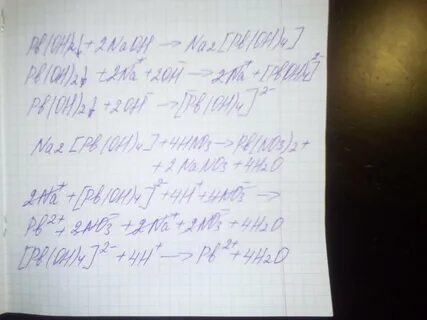 Pb(OH)2↓ + 2NaOH → Na2[Pb(OH)4]
Pb(OH)2↓ + 2Na⁺ + 2OH⁻ → 2Na⁺ + [Pb(OH)4]²⁻
Pb(OH)2↓ + 2OH⁻ → [Pb(OH)4]²⁻
Na2[Pb(OH)4] + 4HNO3 → Pb(NO3)2 +
+ 2NaNO3 + 4H2O
2Na⁺ + [Pb(OH)4]²⁻ + 4H⁺ + 4NO3⁻ →
Pb²⁺ + 2NO3⁻ + 2Na⁺ + 2NO3⁻ + 4H2O
[Pb(OH)4]²⁻ + 4H⁺ → Pb²⁺ + 4H2O